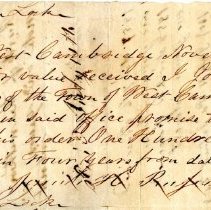 Locke
West Cambridge Nov
value received I
of the Town of West Cam
in said office promise t
his order One Hundr
in Four years from dat
Locke